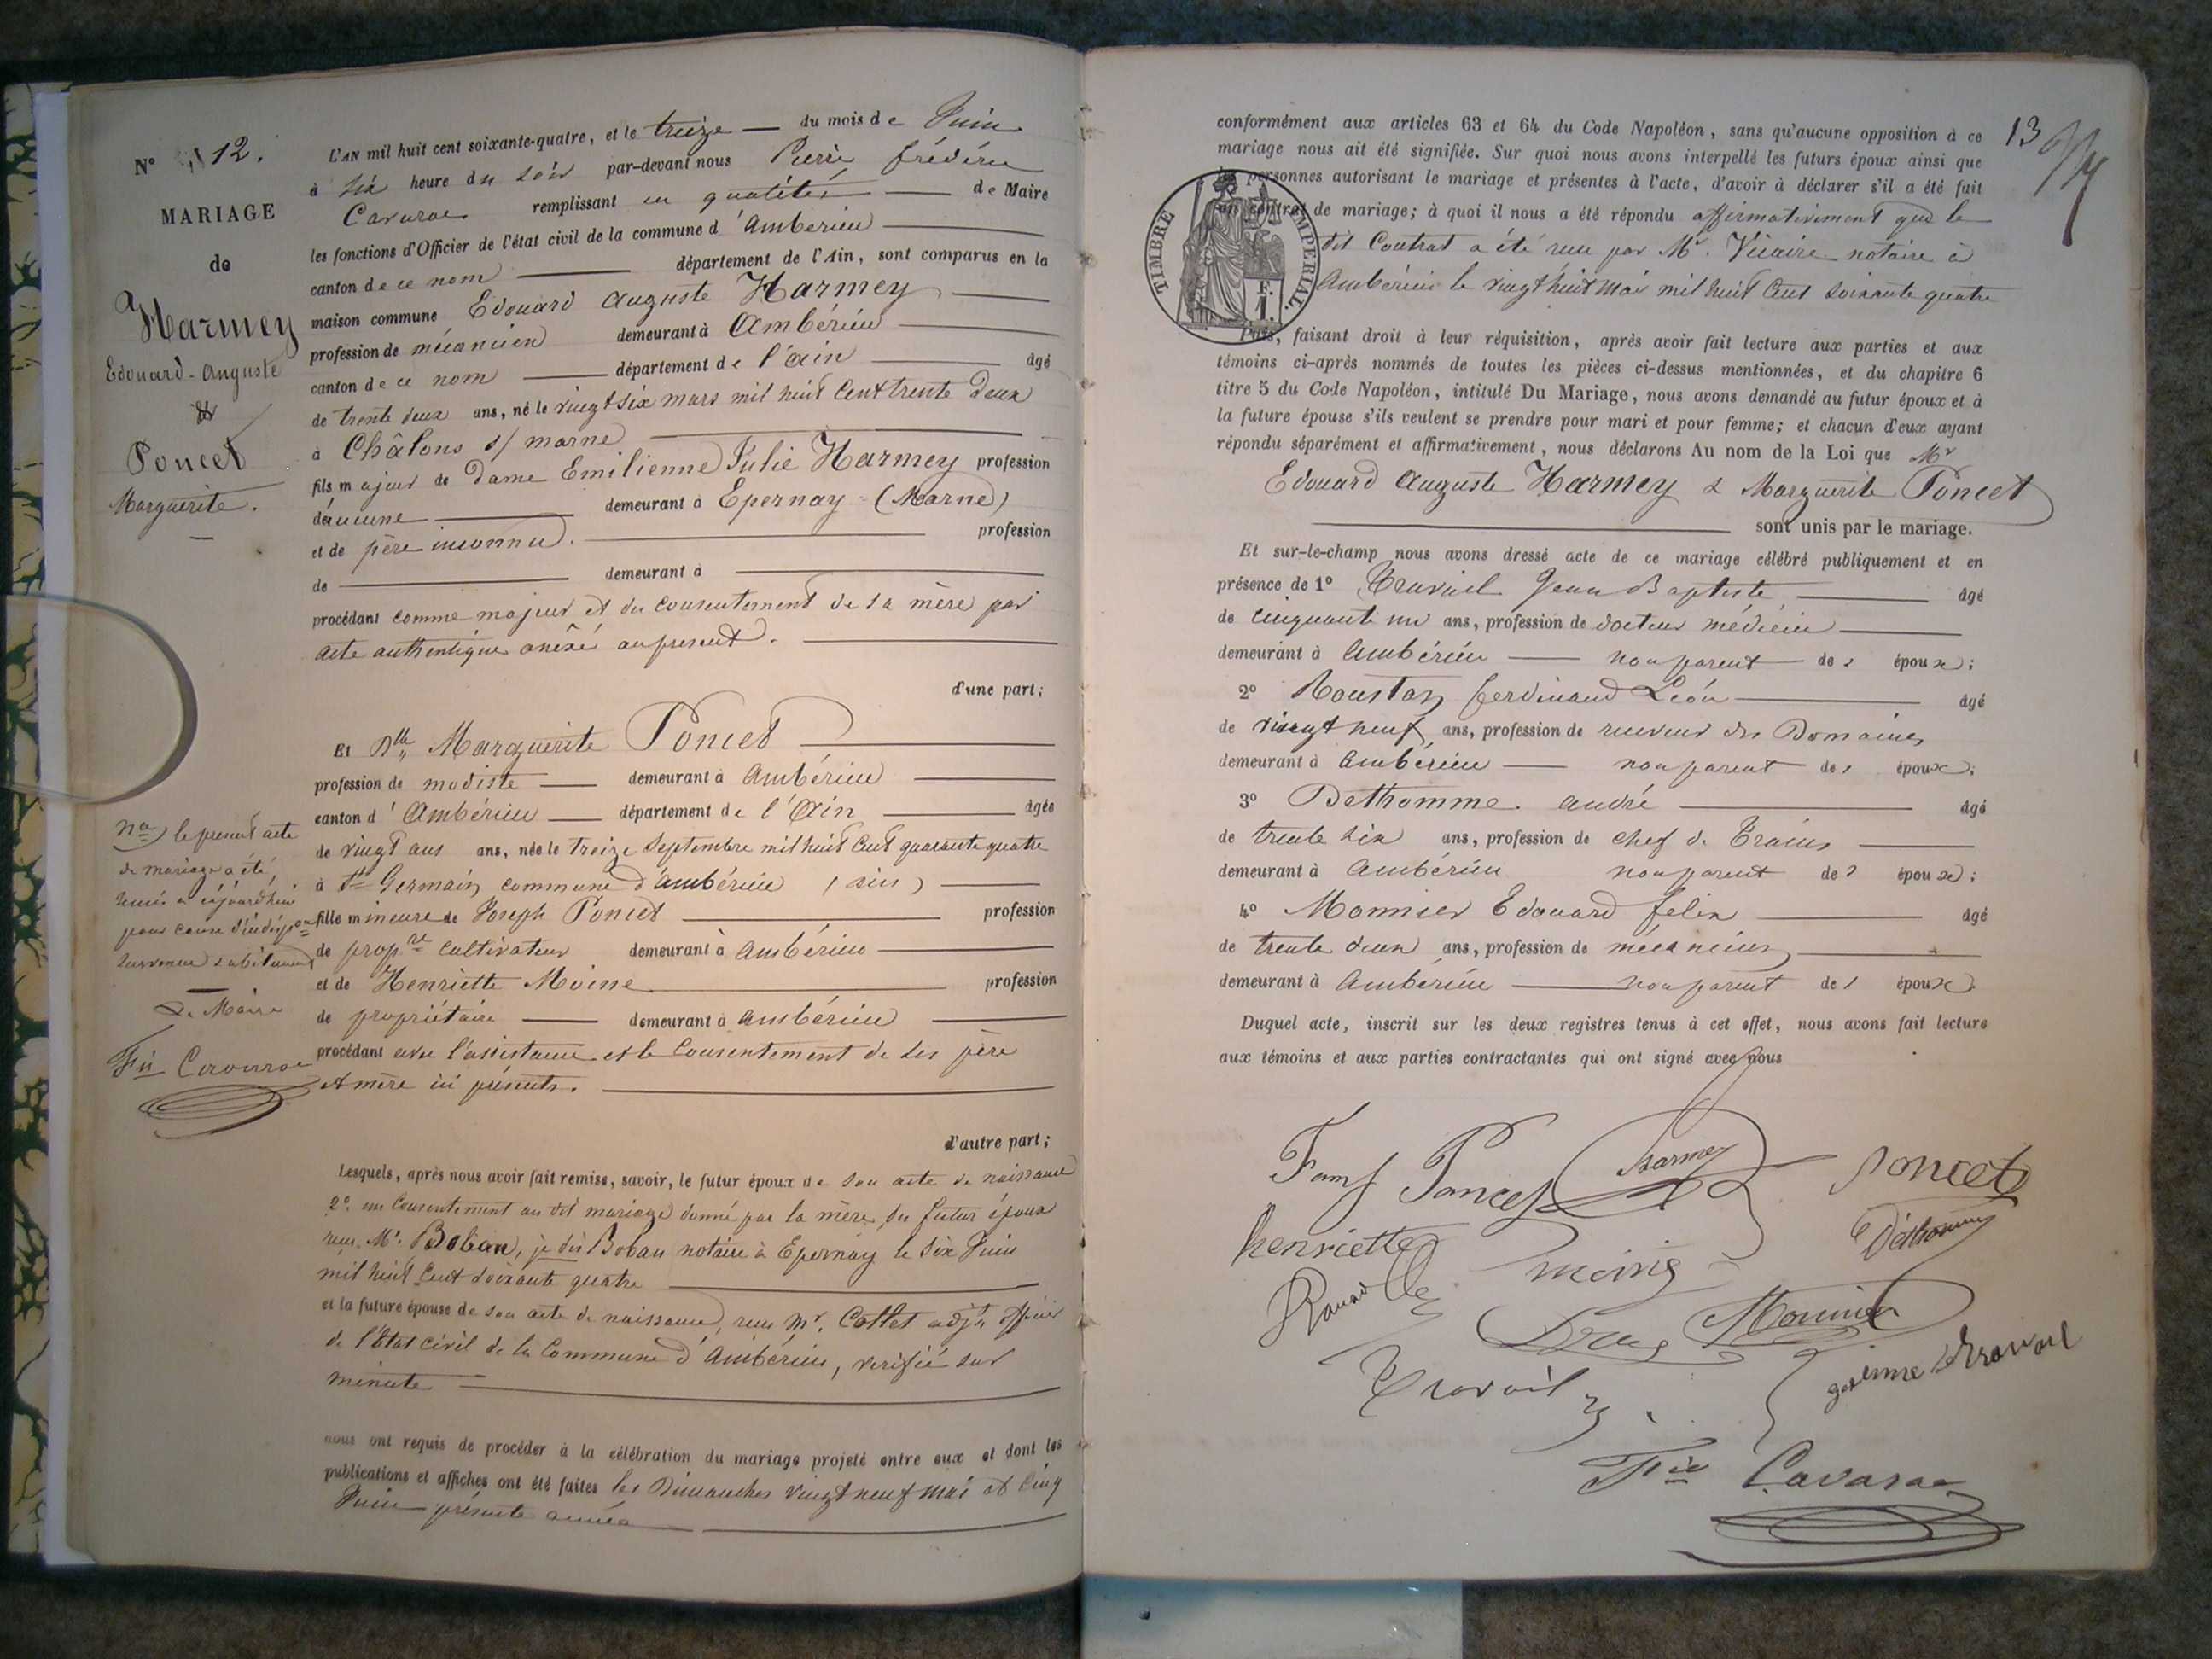 N° 12.
MARIAGE
de
Harmey
Edouard-Auguste
&
Poncet
Marguerite.
L'AN mil huit cent soixante-quatre, et le treize — du mois de Juin
à six heure du soir par-devant nous Pierre frédéric
Cavarae remplissant en qualité de Maire
les fonctions d'Officier de l'état civil de la commune d'Ambérieu
canton de ce nom département de l'Ain, sont comparus en la
maison commune Edouard Auguste Harmey
profession de mécanicien demeurant à Ambérieu
canton de ce nom département de l'Ain âgé
de trente deux ans, né le vingt six mars mil huit Cent trente Deux
à Châlons s/ marne
fils majeur de Dame Emilienne Julie Harmey profession
d'aucune demeurant à Epernay - (Marne)
et de père inconnu. profession
de demeurant à
procédant comme majeur et du consentement de sa mère par
acte authentique anéxé au present.
d'une part;
Et Dlle Marguerite Poncet
profession de modiste demeurant à Ambérieu
canton d'Ambérieu département de l'Ain âgée
de vingt ans ans, née le treize Septembre mil huit Cent quarante quatre
à St Germain, commune d'ambérieu (ain)
fille mineure de Joseph Poncet profession
de propre cultivateur demeurant à ambérieu
et de Henriette Moine profession
de propriétaire demeurant à ambérieu
procédant avec l'assistance et le Consentement de ses père
& mère ici présents.
d'autre part;
na le present acte
de mariage a été,
pour cause d'indispon
survenue subitement
Le Maire
Fic Cavarae
Lesquels, après nous avoir fait remise, savoir, le futur époux de son acte de naissance
2° un Consentement au dit mariage donné par la mère du futur époux
reçu Mr. Boban, je dis Boban notaire à Epernay le six Juin
mil huit Cent soixante quatre
et la future épouse de son acte de naissance, reçu Mr. Collet adjt officier
de l'Etat civil de la Commune d'Ambérieu, verifié sur
minute
nous ont requis de procéder à la célébration du mariage projeté entre eux et dont les
publications et affiches ont été faites les Dimanches vingt neuf mai et cinq
Juin présente année
13
conformément aux articles 63 et 64 du Code Napoléon, sans qu'aucune opposition à ce
mariage nous ait été signifiée. Sur quoi nous avons interpellé les futurs époux ainsi que
les personnes autorisant le mariage et présentes à l'acte, d'avoir à déclarer s'il a été fait
un contrat de mariage; à quoi il nous a été répondu affirmativement que le
dit Contrat a été reçu par Mr. Vicaire notaire à
Ambérieu le vingt huit mai mil huit Cent soixante quatre
TIMBRE IMPERIAL
F.
1.
Puis, faisant droit à leur réquisition, après avoir fait lecture aux parties et aux
témoins ci-après nommés de toutes les pièces ci-dessus mentionnées, et du chapitre 6
titre 5 du Code Napoléon, intitulé Du Mariage, nous avons demandé au futur époux et à
la future épouse s'ils veulent se prendre pour mari et pour femme; et chacun d'eux ayant
répondu séparément et affirmativement, nous déclarons Au nom de la Loi que Mr
Edouard Auguste Harmey & Marguerite Poncet
sont unis par le mariage.
Et sur-le-champ nous avons dressé acte de ce mariage célébré publiquement et en
présence de 1° Travail Jean Baptiste âgé
de cinquante un ans, profession de docteur médecin
demeurant à Ambérieu non parent des époux;
2° Roustan ferdinand Léon âgé
de vingt neuf ans, profession de receveur des Domaines
demeurant à Ambérieu non parent des époux;
3° Dethomme andré âgé
de trente six ans, profession de chef de Trains
demeurant à Ambérieu non parent des époux;
4° Monnier Edouard felix âgé
de trente deux ans, profession de mécanicien
demeurant à Ambérieu non parent des époux
Duquel acte, inscrit sur les deux registres tenus à cet effet, nous avons fait lecture
aux témoins et aux parties contractantes qui ont signé avec nous
Poncet Harmey Poncet
henriette moine Déthomme
Monnier
Travail
Fic Cavarae